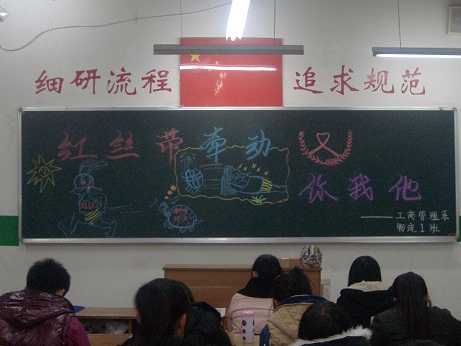 细研流程 追求规范
红丝带牵动
你我他
AIDS
——工商管理系
物流1班